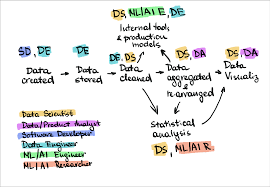 DS, ML/AI E, DE
Internal tools
& production
models
SD, DE
DE
DE, DS
DS, DA
DS, DA
Data
created
Data
stored
Data
cleaned
Data
aggregated
& rearranged
Data
Visualiz
Statistical
analysis
DS, ML/AI R
Data Scientist
Data/Product Analyst
Software Developer
Data Engineer
ML/AI Engineer
ML/AI Researcher